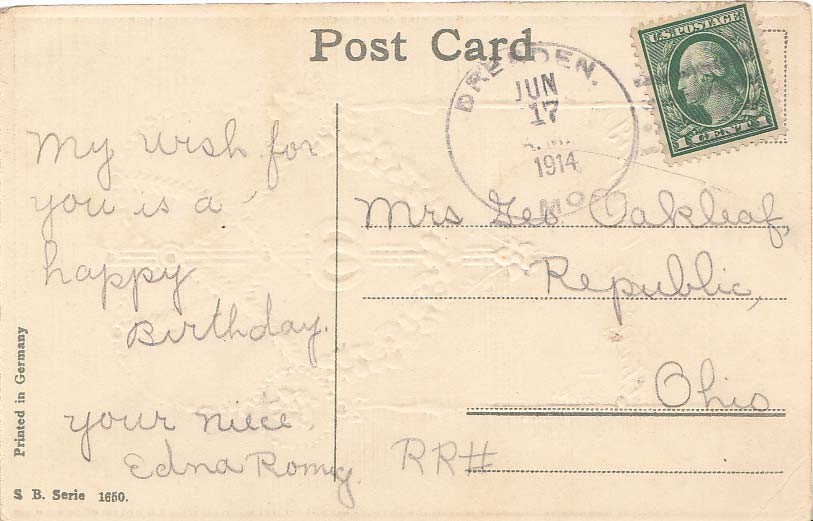 Post Card
U.S. POSTAGE
1 CENT 1
DRESDEN,
JUN
17
A.M.
1914
MO
My wish for
you is a
happy
Birthday.
your niece.
Edna Romig.
Mrs Geo Oakleaf,
Republic,
Ohio
RR#
Printed in Germany
S. B. Serie 1650.